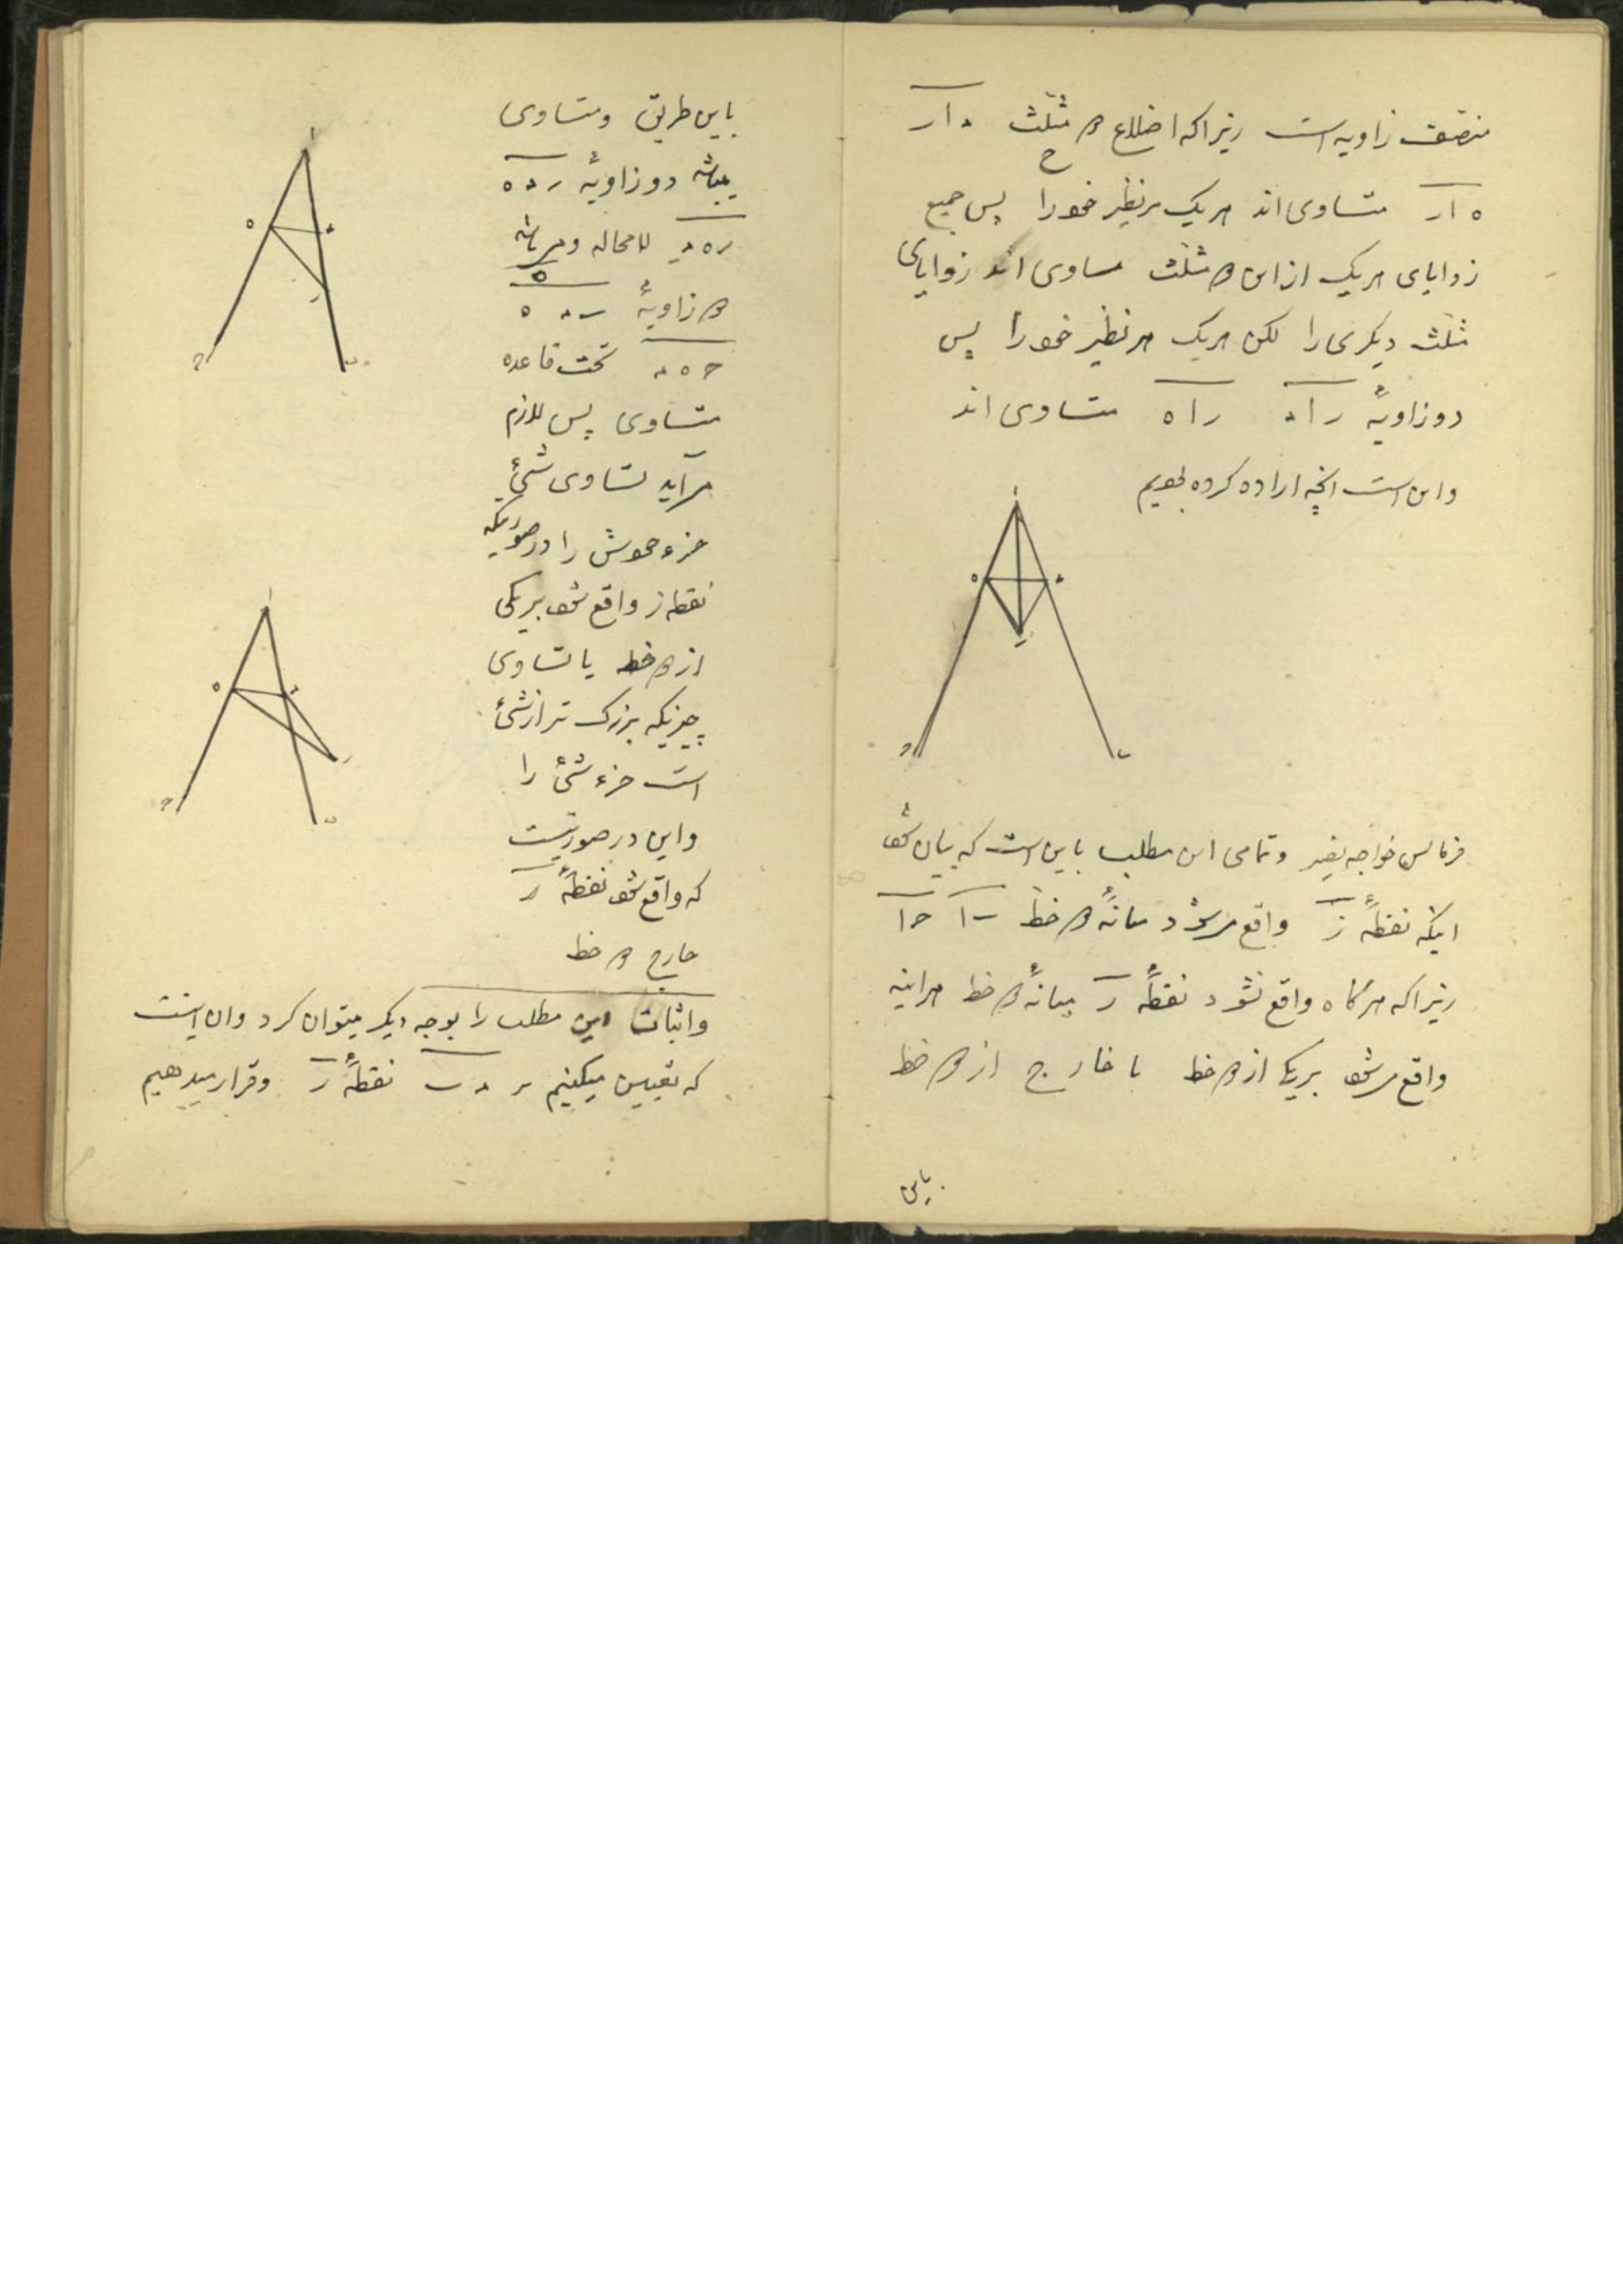 منصف زاویه است زیرا که اضلاع دو مثلث د ا ر
ح
ه ا ر متساوی اند هریک مر نظیر خود را پس جمیع
زوایای هریک از این دو مثلث مساوی اند زوایای
مثلث دیگری را لکن هریک مر نظیر خود را پس
دو زاویهٔ ر ا د ر ا ه متساوی اند
و این است انچه اراده کرده بودیم
ا
ه د
ر
ح ب
فرمایش خواجه نصیر و تمامی این مطلب باین است که بیان شود
اینکه نقطهٔ ز واقع میشود میانهٔ دو خط ب ا ح ا
زیرا که هرگاه واقع نشود نقطهٔ ر میانهٔ دو خط هراینه
واقع میشود بر یکی از دو خط یا خارج از دو خط
باین
باین طریق و متساوی
میباشد دو زاویهٔ ر د ه
ر ه د لامحاله و میباشد
دو زاویهٔ ب د ه
ح ه د تحت قاعده
متساوی پس لازم
می آید تساوی شیٔ
جزء خودش را در صورتیکه
نقطه ز واقع شود بر یکی
از دو خط یا تساوی
چیزیکه بزرک تر از شیٔ
است جزء شیٔ را
و این در صورتیست
که واقع شود نقطهٔ ر
خارج دو خط
و اثبات این مطلب را بوجه دیکر میتوان کرد و ان اینست
که تعیین میکنیم بر د ب نقطهٔ ر و قرار میدهیم
ا
ه د
ر
ح ب
ا
ه د
ر
ح ب